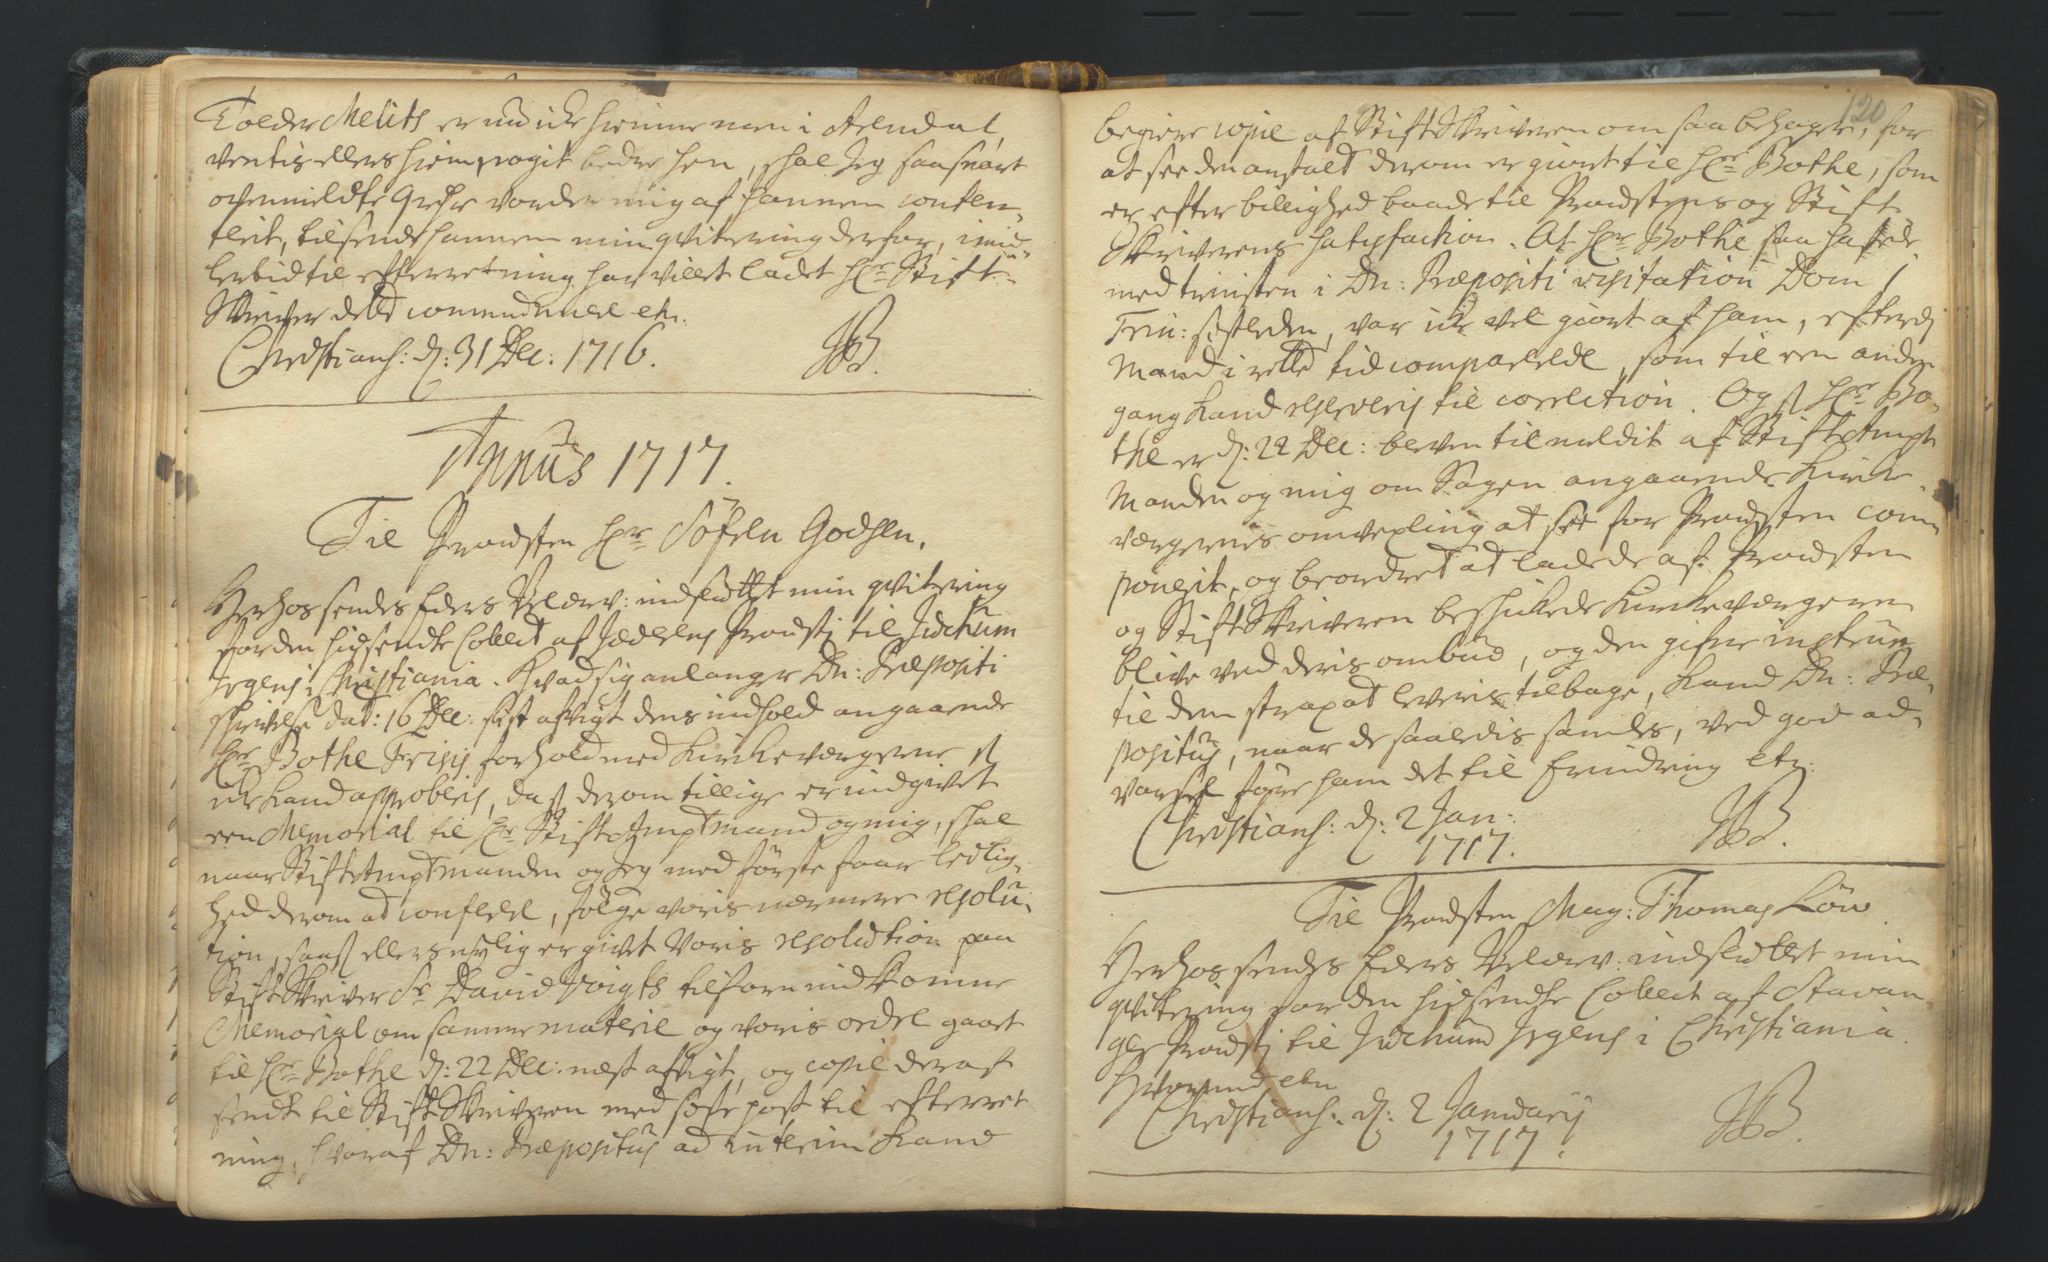 Tolder Melits er nu icke hiemme men i Arendal,
ventis ellers hiem nogit bedre hen, skal Jeg saasnart
ofvenmeldte vorder mig af hannem conten-
terit, tilsende hannem min qvitering derfor, imid-
lertid til efterretning har villet ladet Hr Stift
Skriver dette communicere etc.
Christians: d: 31 Dec: 1716. JB.
Annus 1717.
Til Provsten Hr Søfren Godsen.
Herhos sendes Eders Velærv: indsluttet min qvitering
for den hidsendte Collect af Jæderens Provstj til Jochum
Jrgens i Christiania. Hvad sig anlanger Dn: Præpositi
skrivelse dat: 16 Dec: sist afvigt dens indhold angaaende
Hr Bothe Frisis forhold med Kirkeværgerne
icke kand approberis, da derom tillige er indgivet
een Memorial til Hr StiftAmptmand og mig, skal
naar StiftAmptmanden og Jeg med første faar leilig-
hed derom at conferere, følge voris nærmere resolu-
tion, ellers nylig er givet Voris resolution paa
StiftSkriver Sr David Voigts tilforn indkomne
Memorial om samme materie og voris ordre gaaet
til Hr Bothe d: 22 Dec: næst afvigt, og copie deraf
sendt til StiftSkriveren med siste post til efterret-
ning, hvoraf Dn: Præpositus ad interim kand
120
begiere copie af StiftSkriveren om saa behager, for
at see den anstalt derom er giort til Hr Bothe, som
er efter billighed baade til Provstens og Stift
Skriverens satisfaction. At Hr Bothe saa hafde
med tienisten i Dn: Præpositi visitation Dom
Trin: sistleden, var icke vel giort af ham, efterdj
Mand i rette tid comparerede, som til een anden
gang kand reserveris til correction. Og Hr Bo-
the er d: 22 Dec: bleven tilmeldt af StiftAmpt
Manden og mig om Sagen angaaende Kirke-
værgernes omvexling at for Provsten com-
ponerit, og beordret at lade de af Provsten
og StiftSkriveren beskikede Kirkeværgere
blive ved deris ombud, og den gifne instrux
til dem strax at leveris tilbage, kand Dn: Præ-
positus, naar de saaledis samles, ved god ad-
varsel føre ham det til Erindring etc:
Christians: d: 2 Jan:
1717. JB.
Til Provsten Mag: Thomas Løw
Herhos sendes Eders Velærv: indsluttet min
qvitering for den hidsendte Collect af Stavan-
ger Provstj til Jochum Jrgens i Christiania.
Hvormed etc
Christians: d: 2 Januarij
1717. JB.